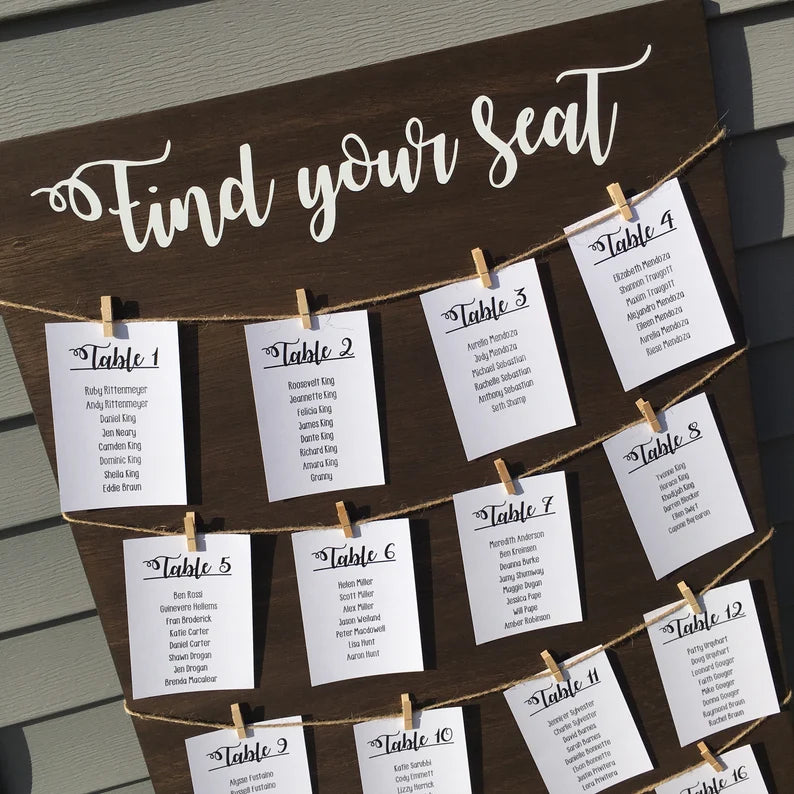 Find your Seat
Table 1
Ruby Rittenmeyer
Andy Rittenmeyer
Daniel King
Jen Neary
Camden King
Dominic King
Sheila King
Eddie Braun
Table 2
Roosevelt King
Jeannette King
Felicia King
James King
Dante King
Richard King
Amara King
Granny
Table 3
Aurelio Mendoza
Jody Mendoza
Michael Sebastian
Rachelle Sebastian
Anthony Sebastian
Seth Shamp
Table 4
Elizabeth Mendoza
Shannon Traugott
Maxim Traugott
Alejandro Mendoza
Eileen Mendoza
Aurelia Mendoza
Riese Mendoza
Table 5
Ben Rossi
Guinevere Hellems
Fran Broderick
Katie Carter
Daniel Carter
Shawn Drogan
Jen Drogan
Brenda Macalear
Table 6
Helen Miller
Scott Miller
Alex Miller
Jason Weiland
Peter Macdowell
Lisa Hunt
Aaron Hunt
Table 7
Meredith Anderson
Ben Kreinsen
Deanna Burke
Jamy Shumway
Maggie Dugan
Jessica Pape
Will Pape
Amber Robinson
Table 8
Yvonne King
Horace King
Khadijah King
Darren Blocker
Ellen Swift
Capone Bergaron
Table 9
Alysse Fustaino
Russell Fustaino
Table 10
Katie Sarubbi
Cody Emmett
Lizzy Herrick
Table 11
Jennifer Sylvester
Charlie Sylvester
David Barnes
Sarah Barnes
Danielle Bonnette
Elson Bonnette
Justin Privitera
Lora Privitera
Table 12
Patty Urquhart
Doug Urquhart
Leonard Gouger
Faith Gouger
Mike Gouger
Donna Gouger
Raymond Braun
Rachel Braun
Table 16